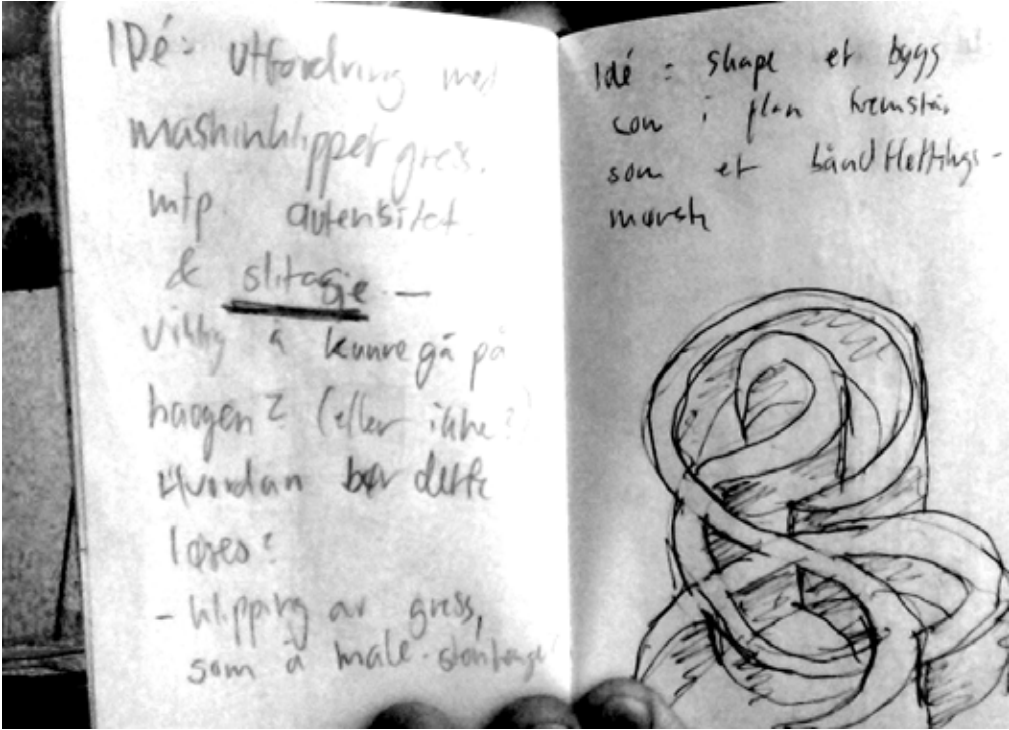 IDé: utfordring med
mashinklippet gress.
mtp. autensitet
& slitasje —
viktig å kunne gå på
haugen? (eller ikke?)
Hvordan bør dette
løses?
- klipping av gress,
som å male
Idé: shape et bygg
som i plan fremstår
som et båndflettings-
mønster